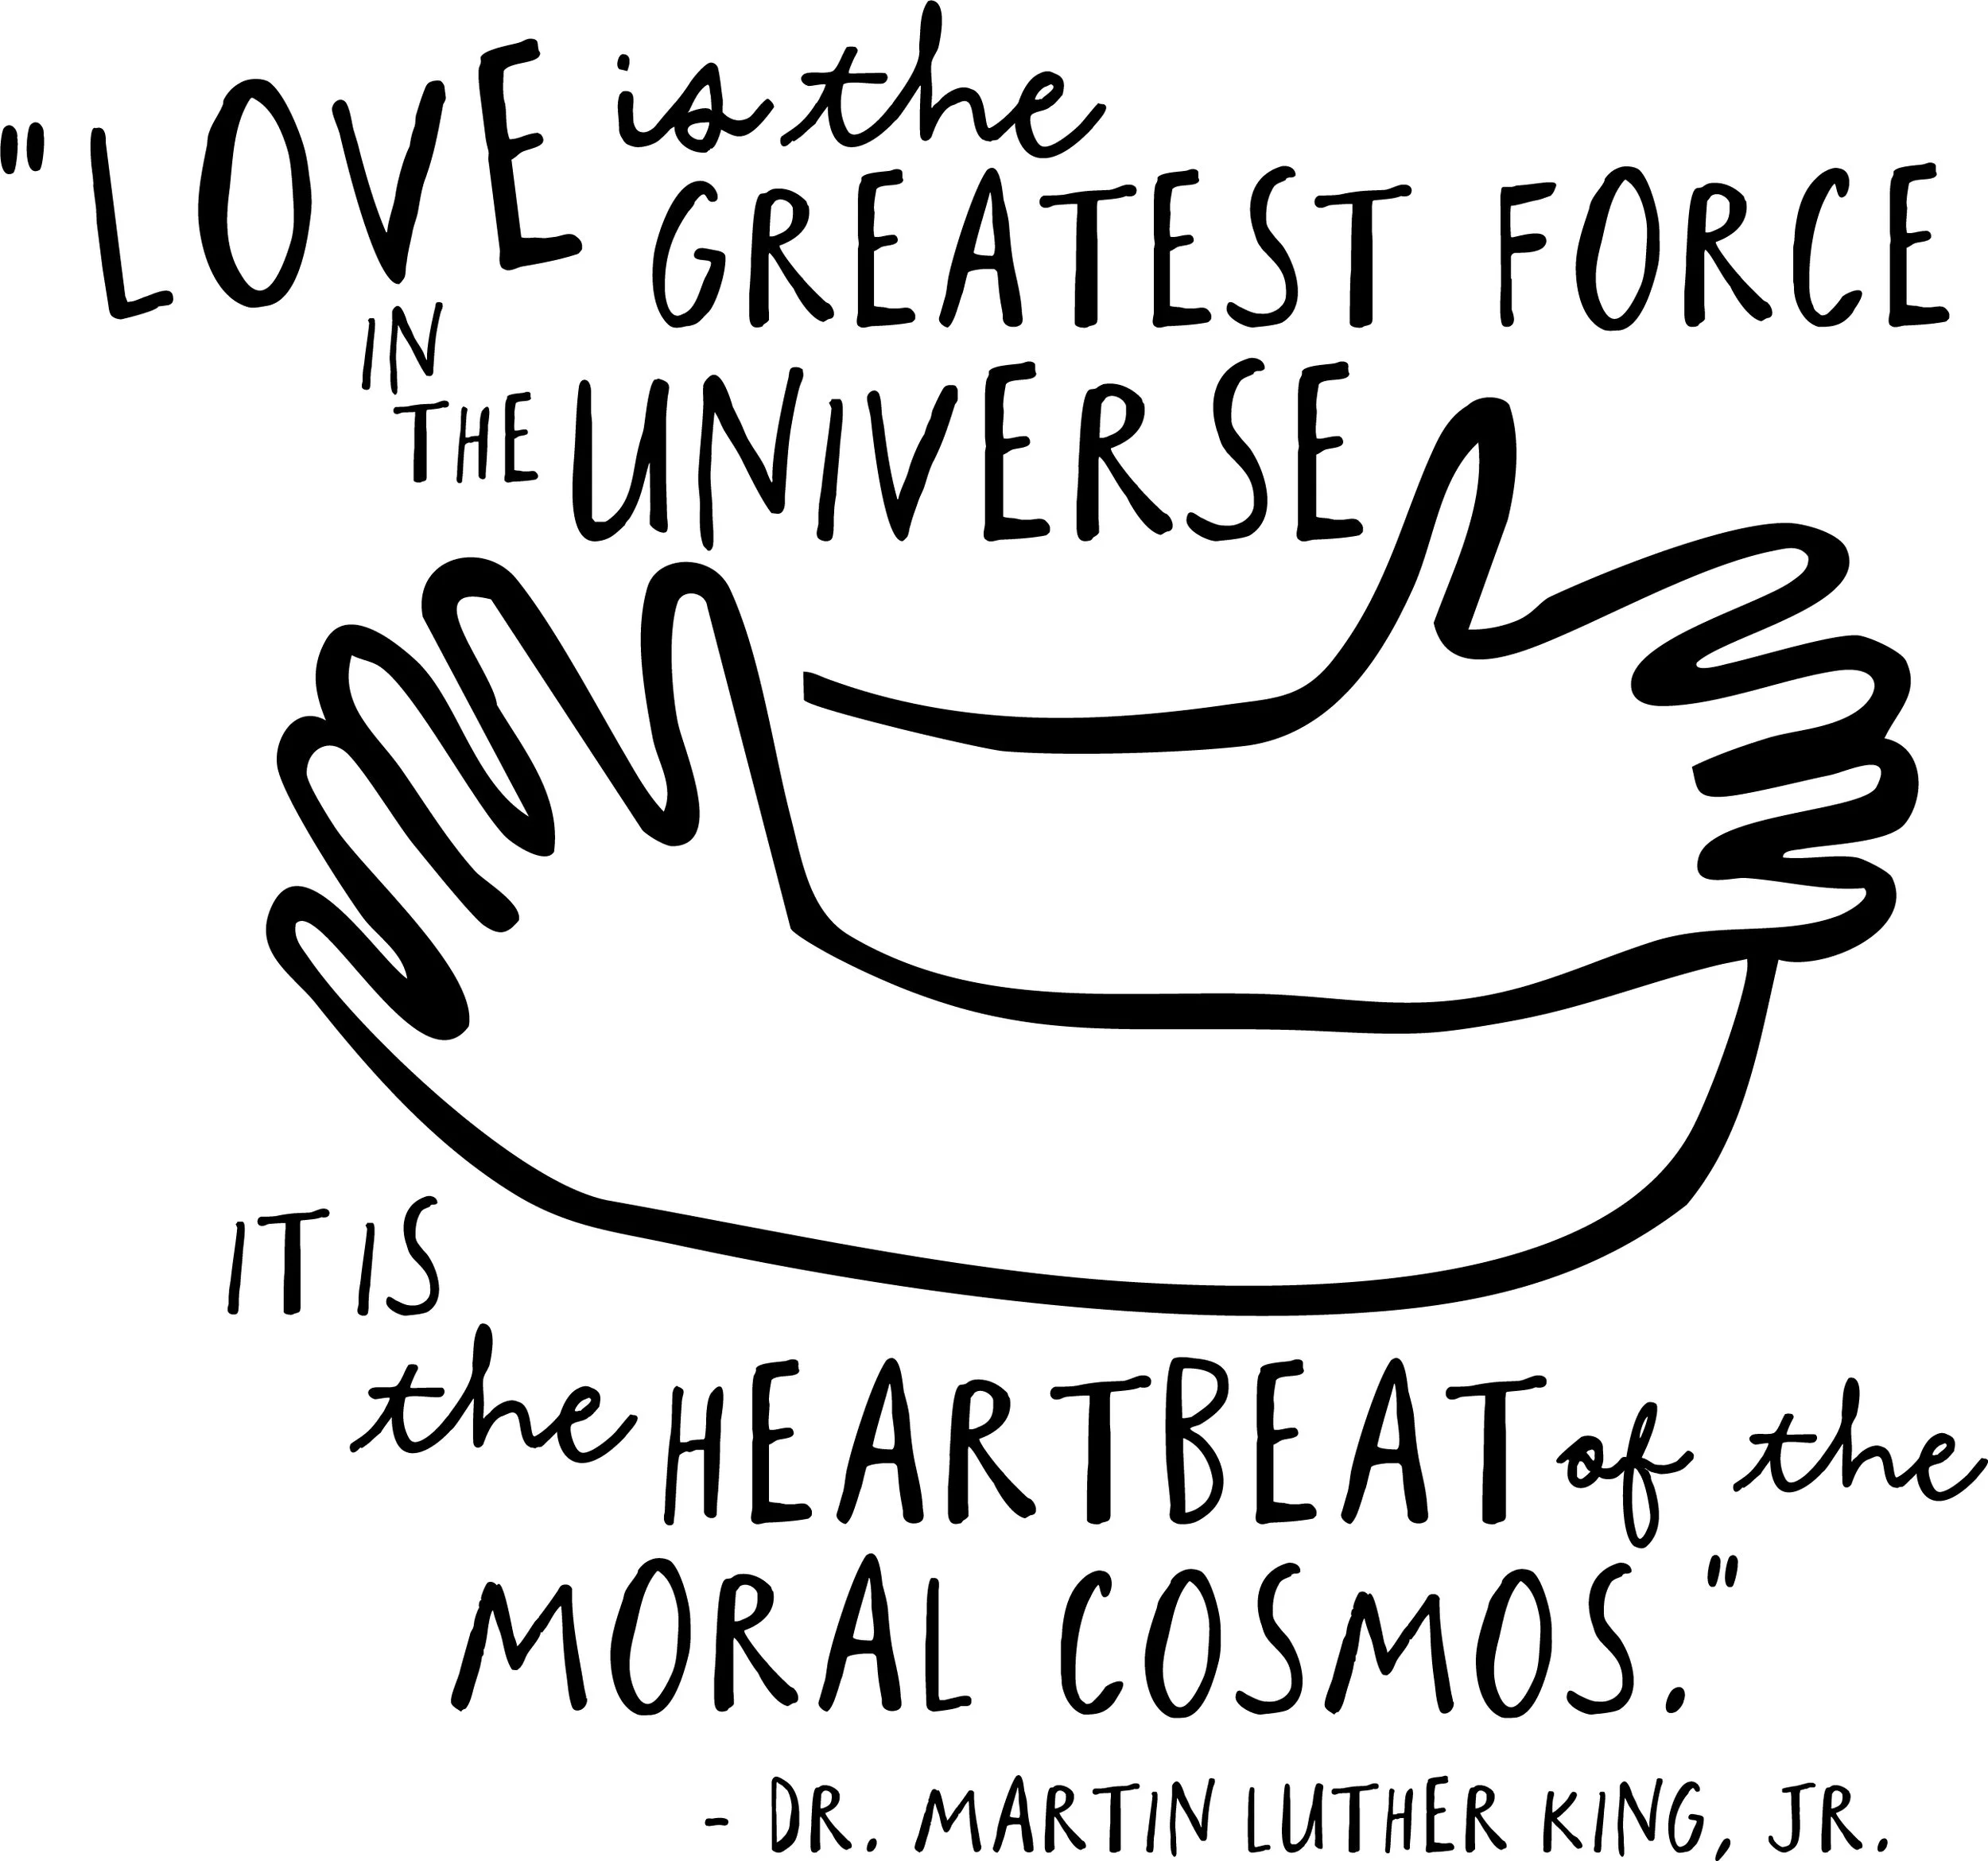 "LOVE is the
GREATEST FORCE
IN
THE UNIVERSE
IT IS
the HEARTBEAT of the
MORAL COSMOS."
- DR. MARTIN LUTHER KING, JR.